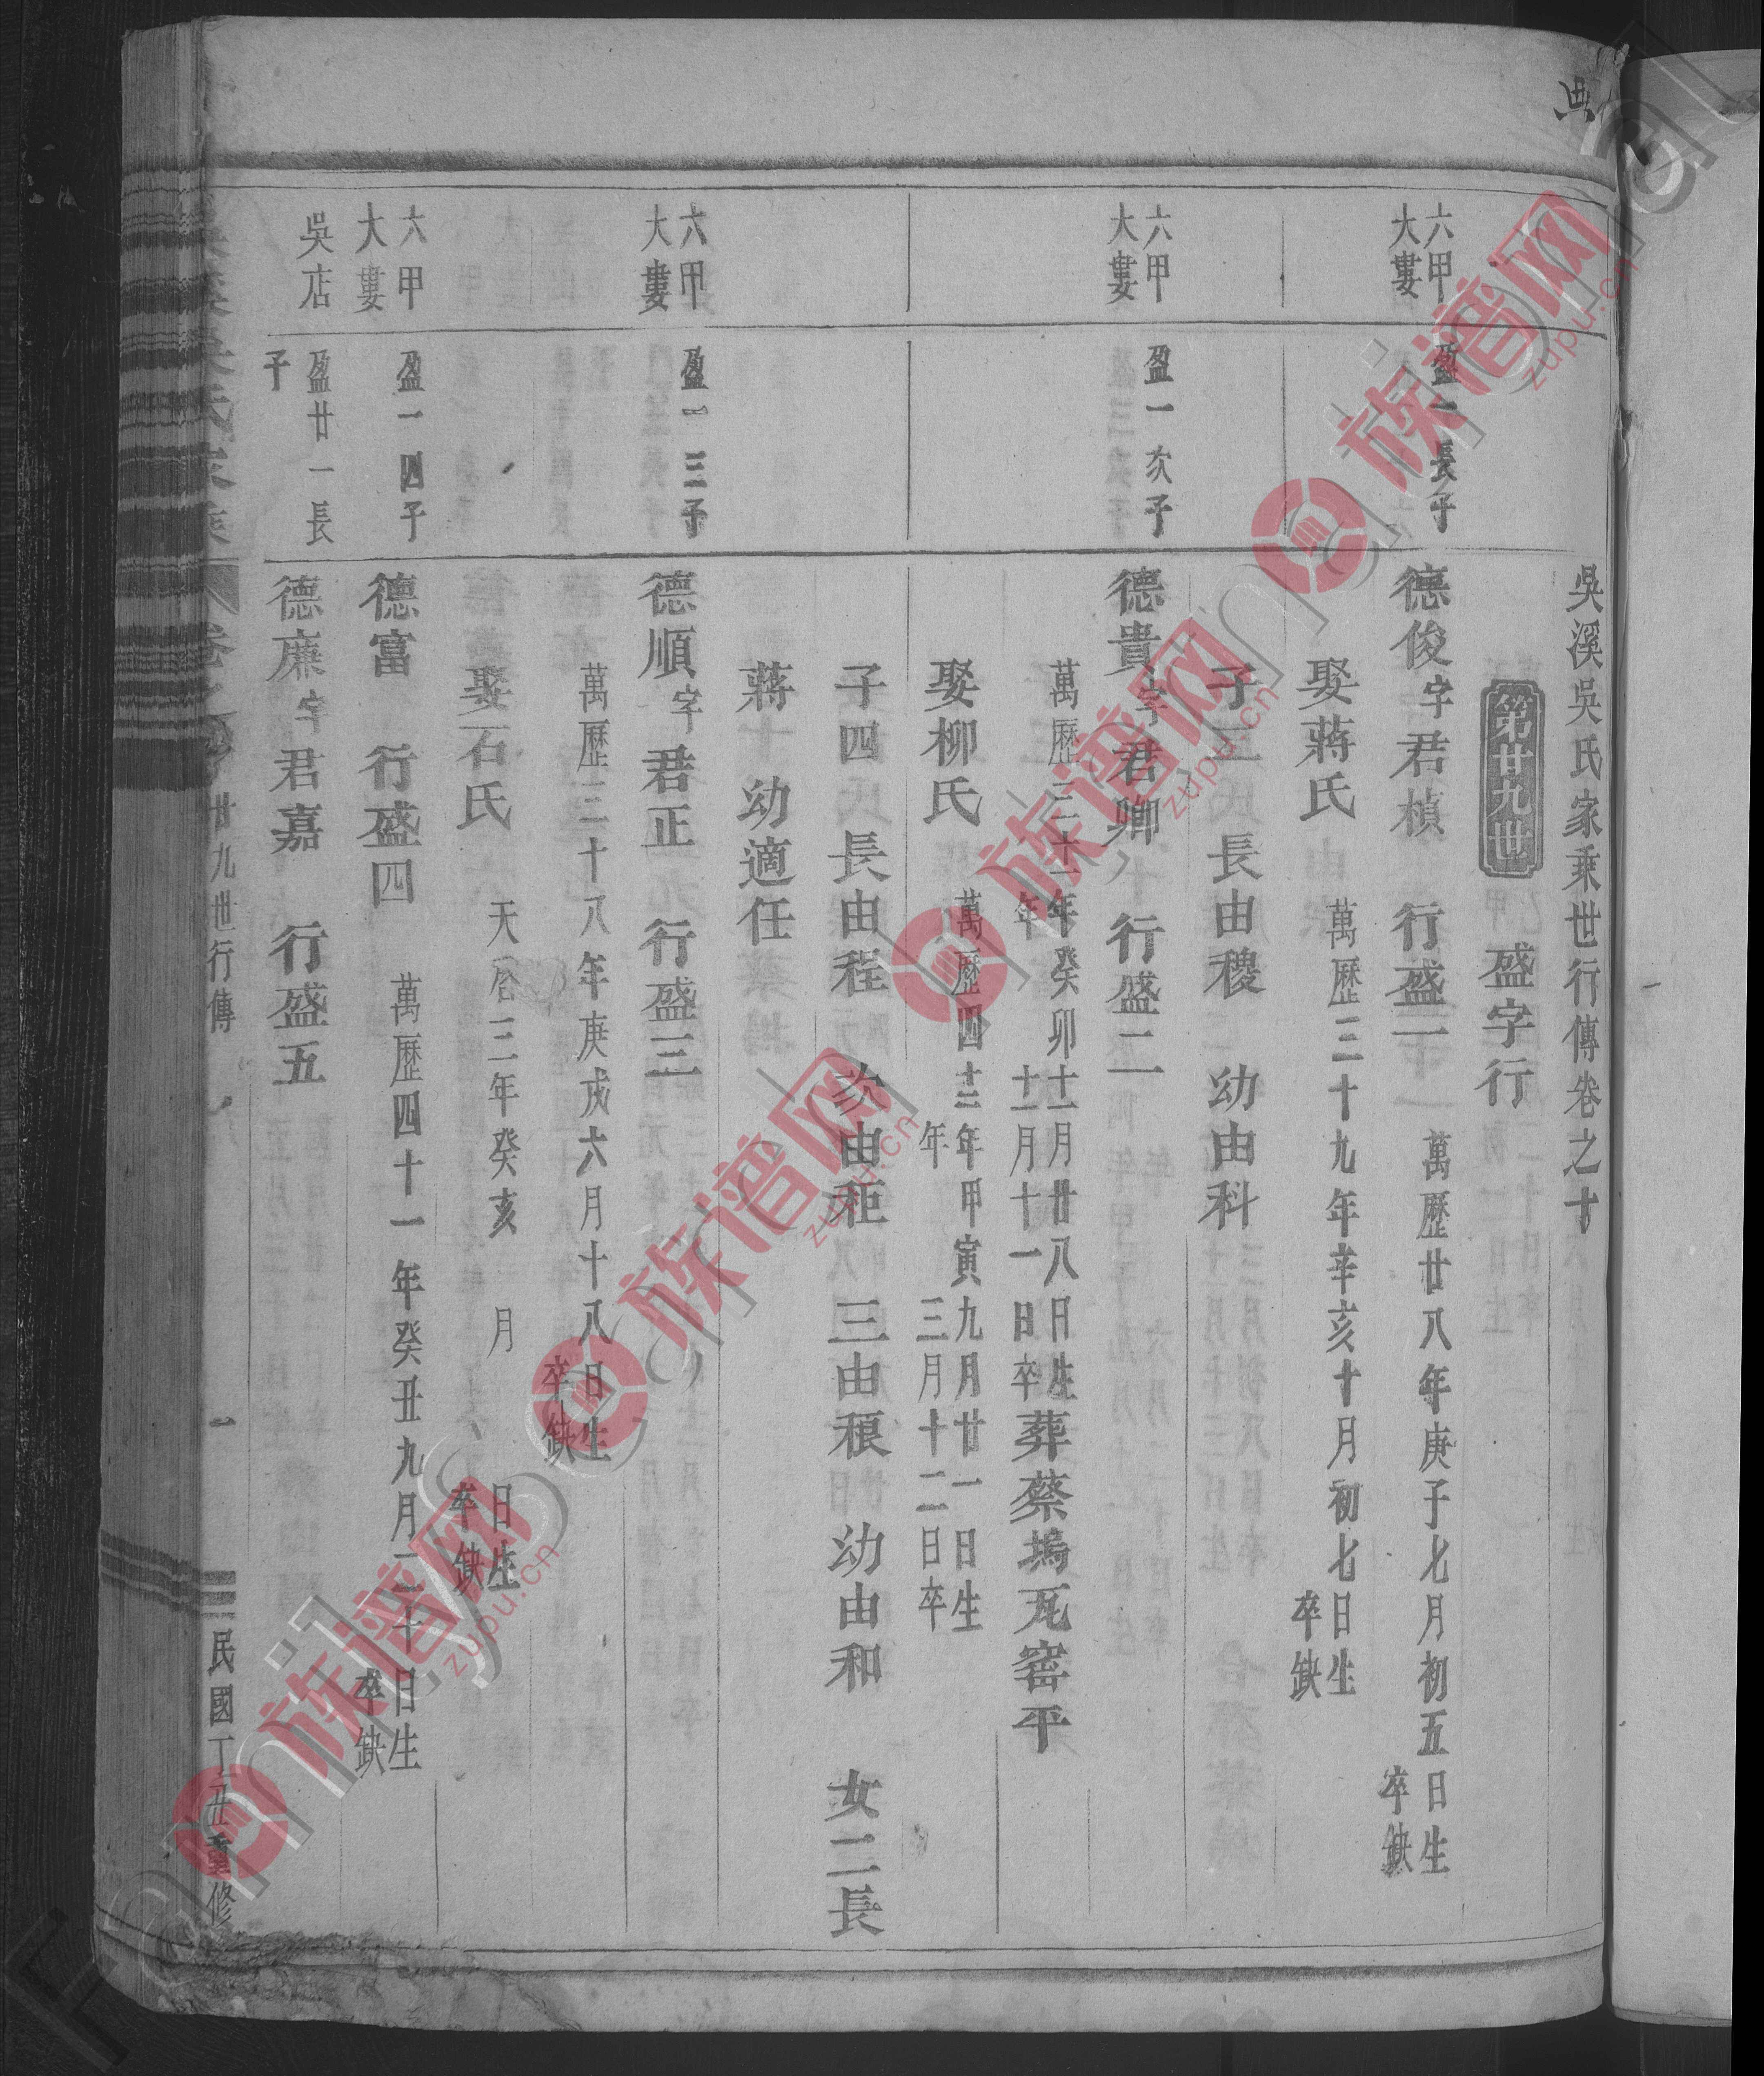 吳溪吳氏家乘世行傳卷之十
第廿九世
盛字行
六甲
大婁
盈一長子
德俊字君楨 行盛一
萬歷廿八年庚子七月初五日生
卒缺
娶蔣氏
萬歷三十九年辛亥十月初七日生
卒缺
子二 長由稷 幼由科
六甲
大婁
盈一次子
德貴字君卿 行盛二
萬歷三十一年癸卯十一月廿八日生
年 十一月十一日卒
葬蔡塢瓦窰平
娶柳氏
萬歷四十二年甲寅九月廿一日生
年 三月十二日卒
子四 長由程 次由秬 三由稂 幼由和 女二長
蔣 幼適任
六甲
大婁
盈一三子
德順字君正 行盛三
萬歷三十八年庚戌六月十八日生
卒缺
娶石氏
天啓三年癸亥 月 日生
卒缺
六甲
大婁
盈一四子
德富 行盛四
萬歷四十一年癸丑九月二十日生
卒缺
吳店
盈廿一長
子
德廉字君嘉 行盛五
廿九世行傳
一
民國丁丑重修
族谱网
zupu.cn
族谱网
zupu.cn
族谱网
zupu.cn
族谱网
zupu.cn